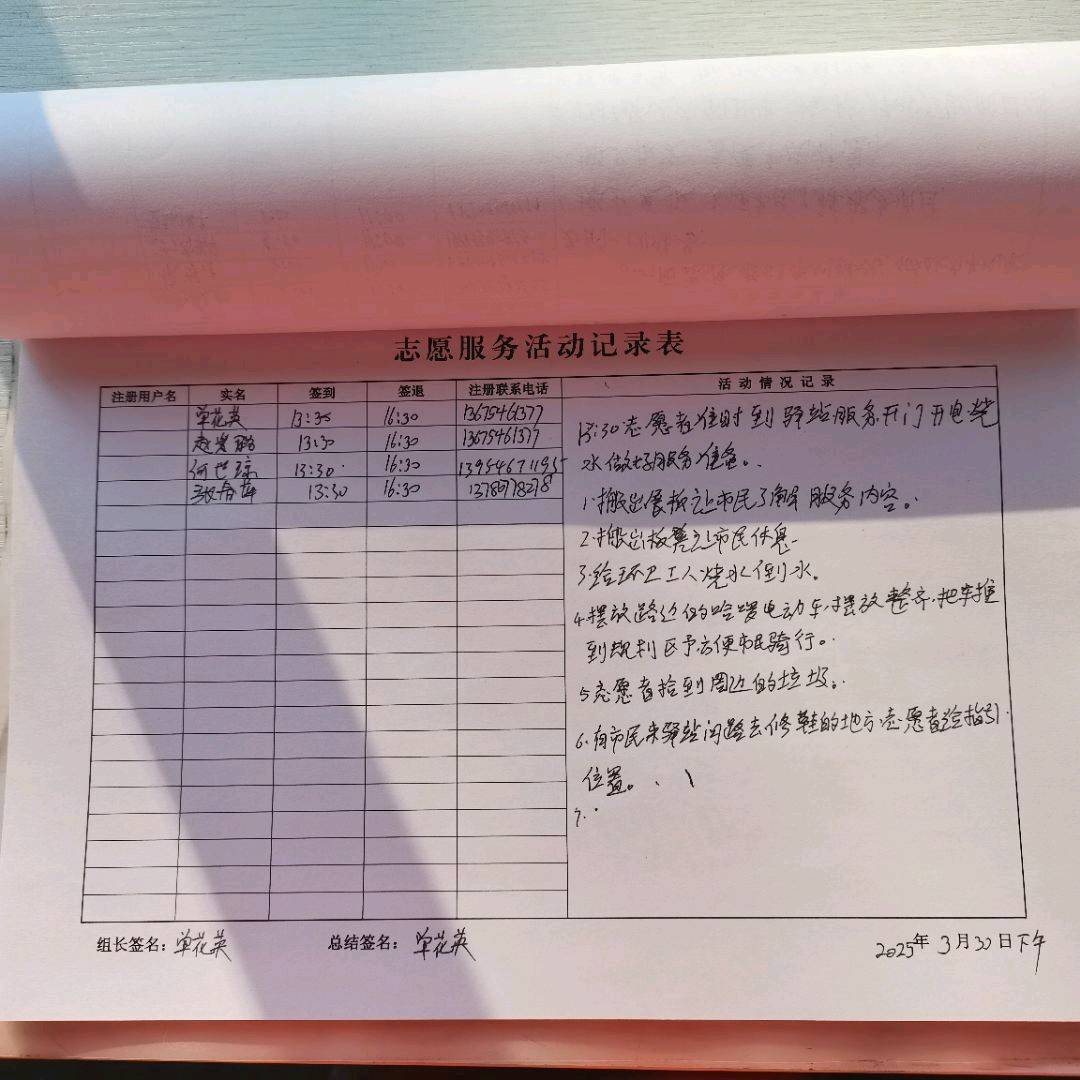 志愿服务活动记录表
注册用户名 实名 签到 签退 注册联系电话 活动情况记录
单花英 13:30 16:30 13675461377
13:30 16:30 13675461377
何世琼 13:30 16:30 13954671195
13:30 16:30
13:30志愿者准时到驿站服务开门开电烧
水做好服务准备。
1.搬出展板让市民了解服务内容。
2.搬出板凳让市民休息
3.给环卫工人烧水倒水。
4.摆放路边的哈啰电动车摆放整齐.把车推
到规划区予方便市民骑行。
5志愿者拾到周边的垃圾。
6.有市民来驿站问路去修鞋的地方志愿者给指引
位置。
7.
组长签名:单花英 总结签名:单花英 2025年3月30日下午